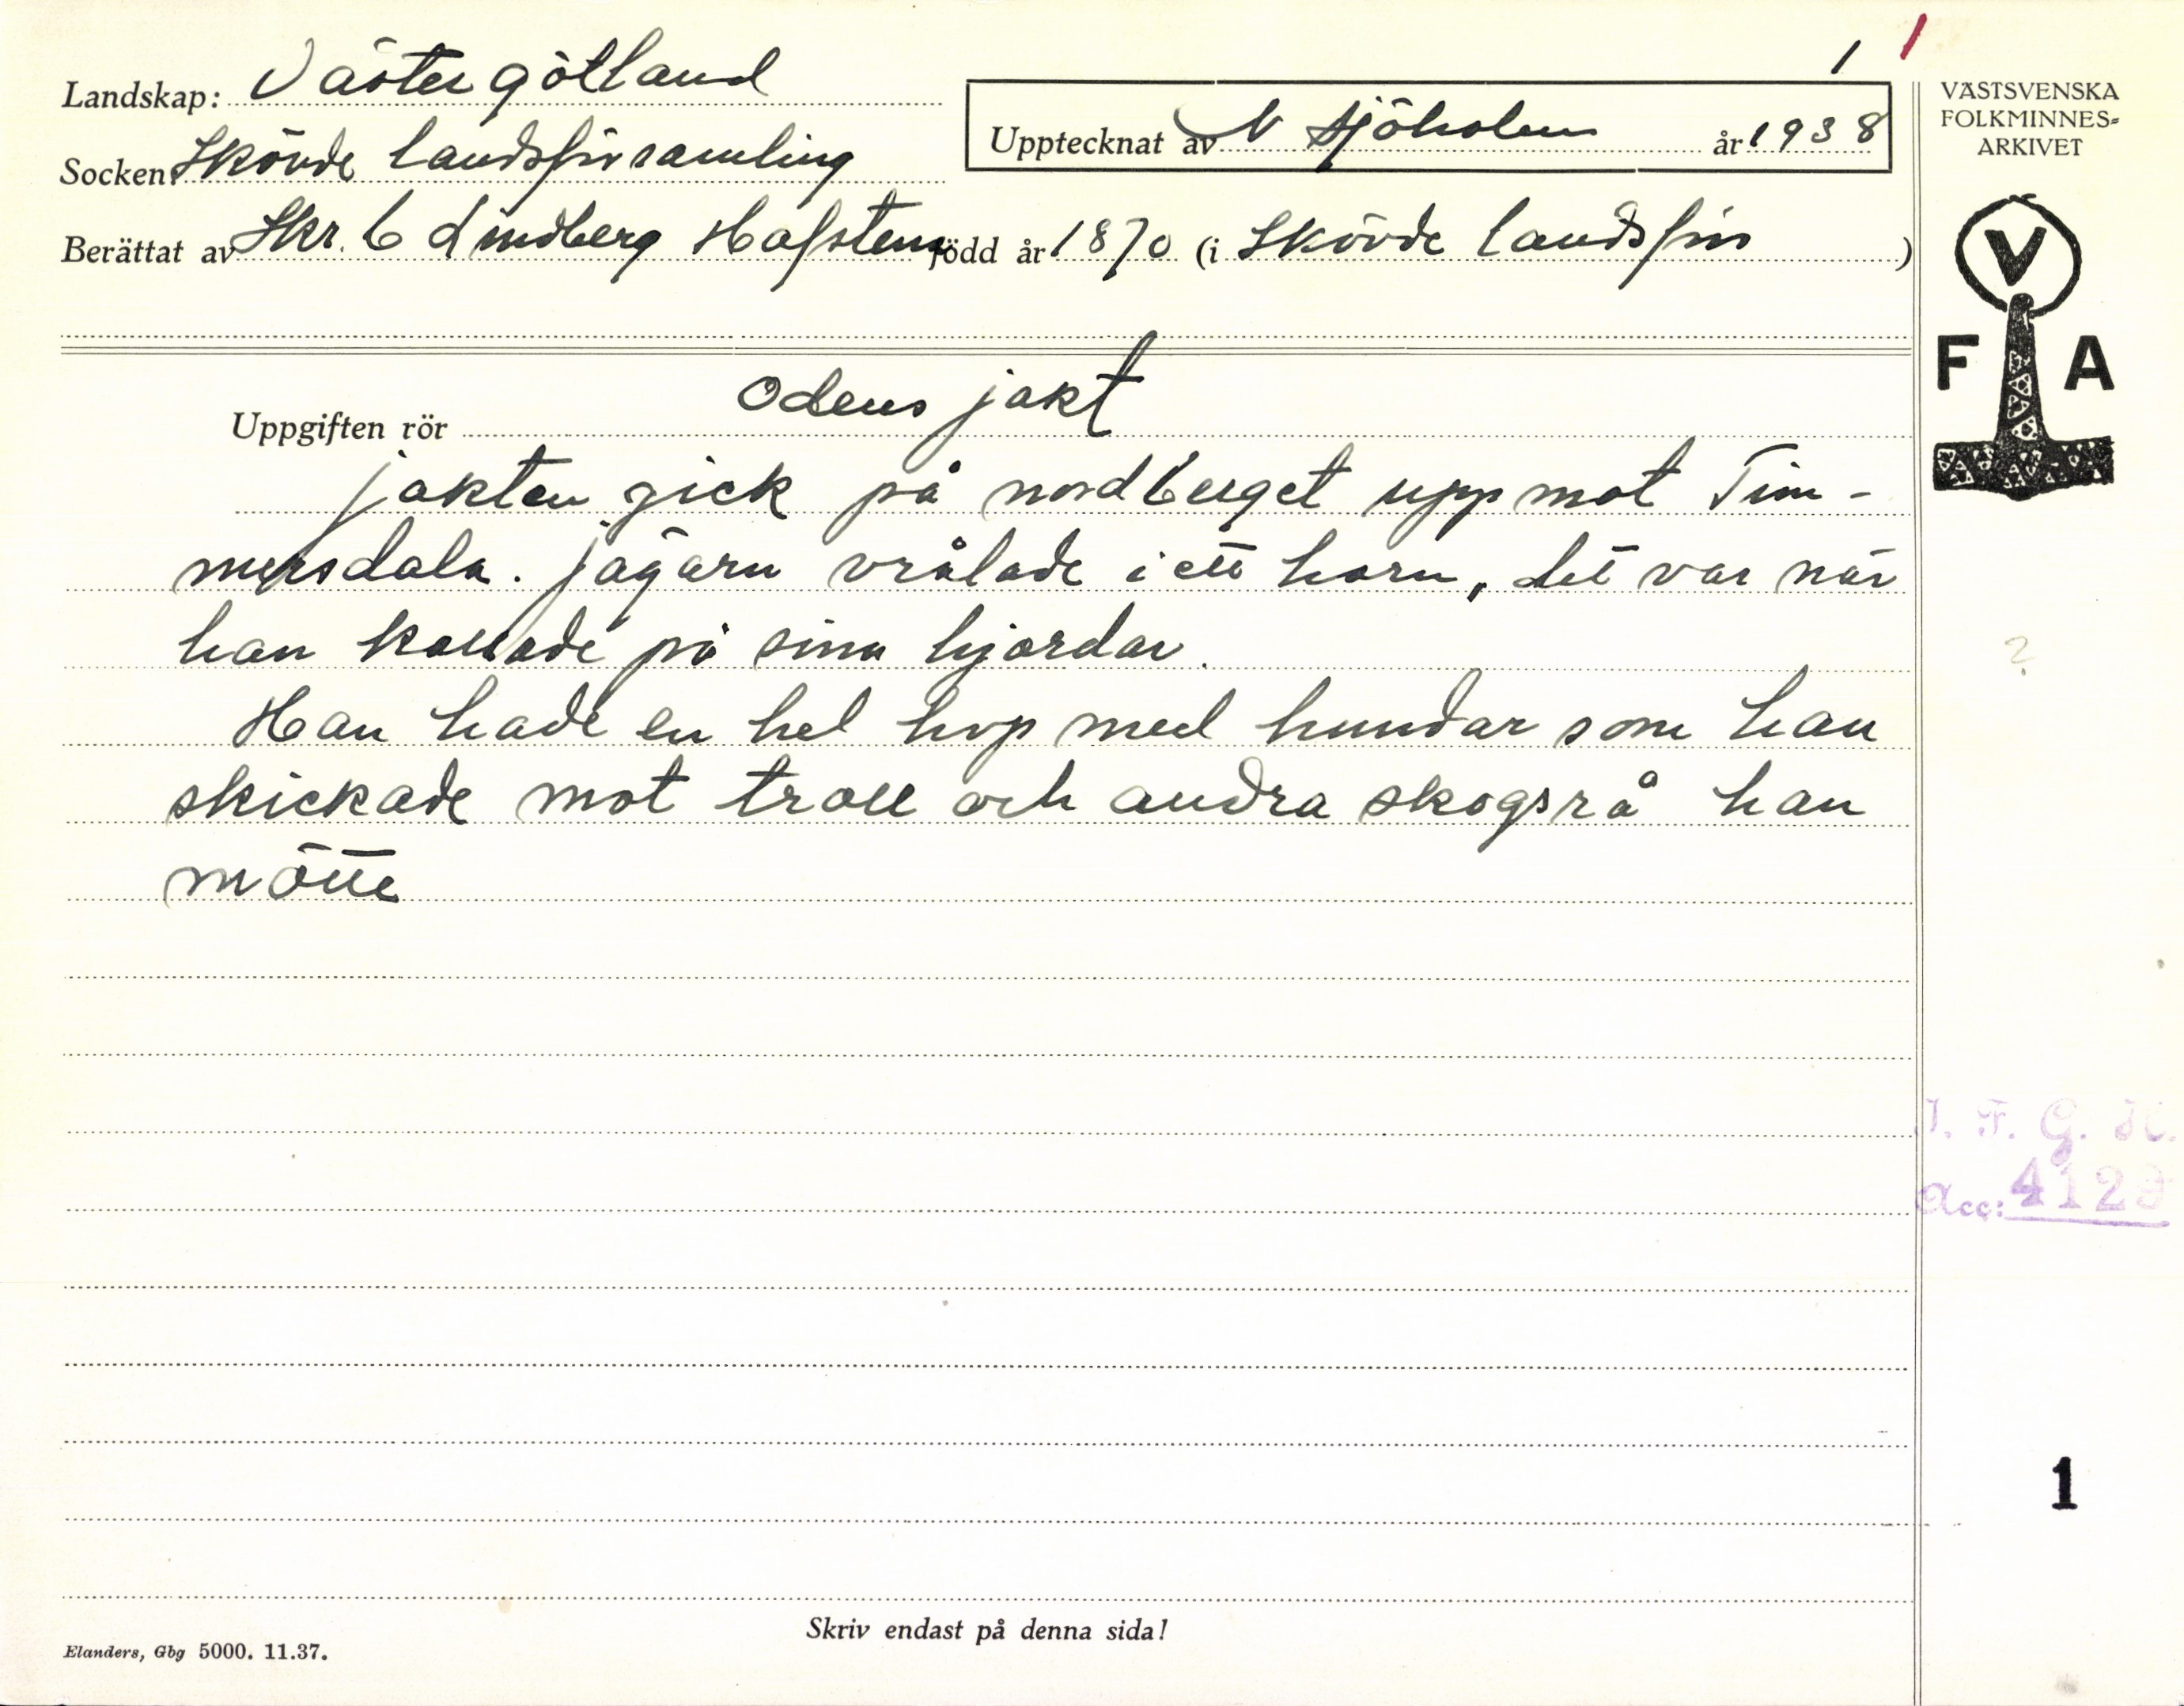 1 1
Landskap: Västergötland
Upptecknat av N Sjöholm år 1938
Socken: Skövde landsförsamling
Berättat av Skr. C Lindberg Hafstena född år 1870 (i Skövde landsför )
Uppgiften rör Odens jakt
jakten gick på nordberget upp mot Tim-
mersdala. jägarn vrålade i ett horn, det var när
han kallade på sina hjordar.
Han hade en hel hop med hundar som han
skickade mot troll och andra skogsrå han
mötte
Skriv endast på denna sida!
Elanders, Gbg 5000. 11.37.
VÄSTSVENSKA
FOLKMINNES-
ARKIVET
V
F A
?
I. F. G. H.
Acc: 4129
1